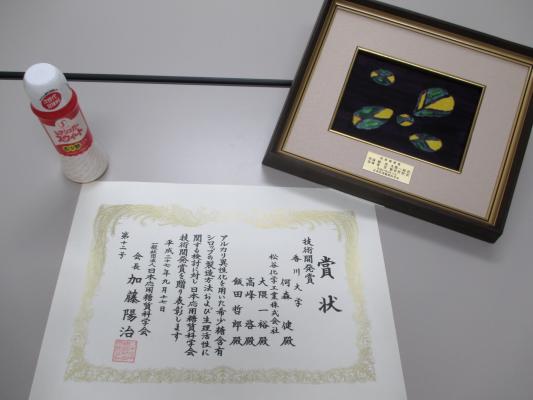 賞状
技術開発賞
香川大学
何森 健殿
松谷化学工業株式会社
大隈 一裕殿
高峰 啓殿
飯田 哲郎殿
アルカリ異性化を用いた希少糖含有
シロップの製造方法および生理活性に
関する検討に対し日本応用糖質科学会
技術開発賞を贈り表彰します
平成二十七年九月十七日
一般社団法人日本応用糖質科学会
会長 加藤陽治
第十二号
レアシュガー
スウィート